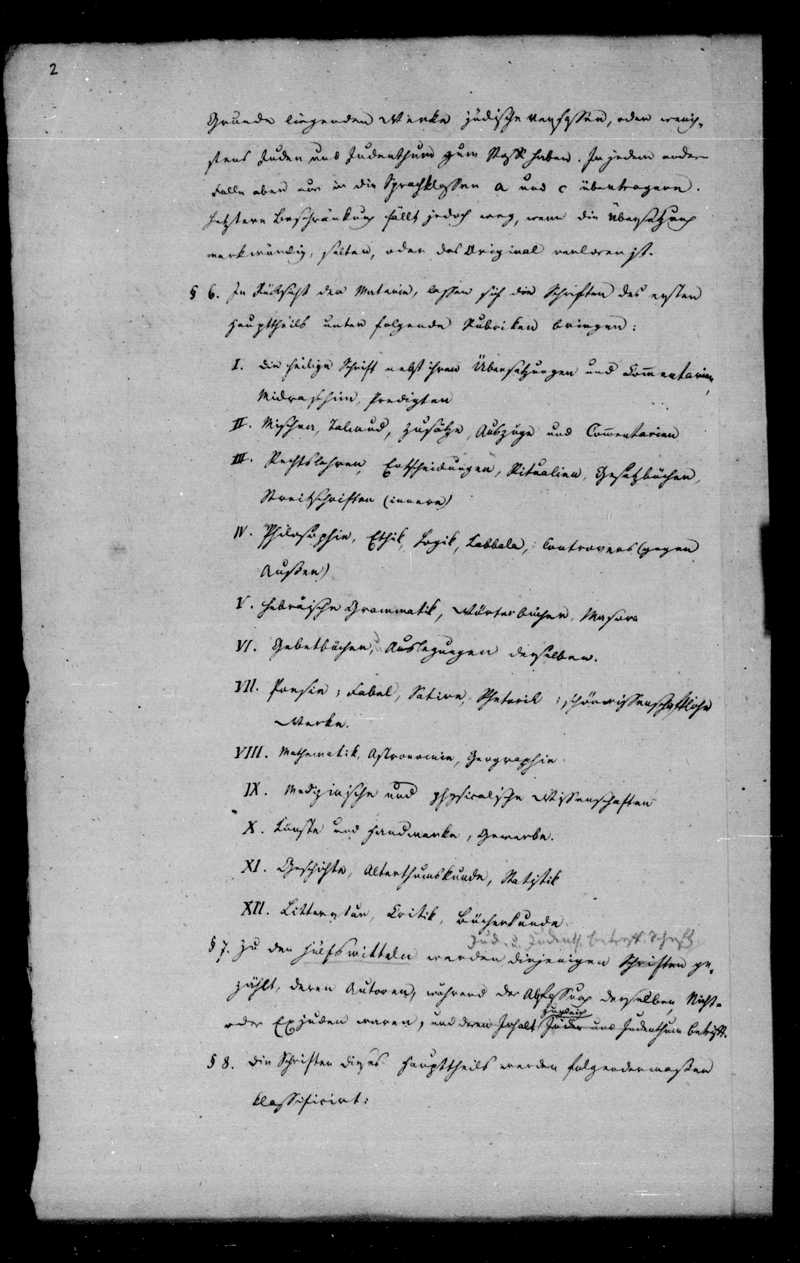 2
Grunde liegenden Werke jüdische Verfasser, oder wenig-
stens Juden und Judenthum zum Stoff haben. In jedem andern
Falle aber nur in die Sprachklassen a und c übertragene.
Letztere Beschränkung fällt jedoch weg, wenn die Übersetzung
merkwürdig, selten, oder das Original verloren ist.
§ 6. In Rücksicht der Materie, lassen sich die Schriften des ersten
Haupttheils unter folgende Rubriken bringen:
I. die heilige Schrift nebst ihren Übersetzungen und Com̄entarien,
Midraschim, Predigten
II. Mischna, Talmud, Zusätze, Auszüge und Com̄entarien
III. Rechtslehren, Entscheidungen, Ritualien, Gesetzbücher,
Streitschriften (innere)
IV. Philosophie, Ethik, Logik, Cabbala, Controvers (gegen
Außen)
V. Hebräische Grammatik, Wörterbücher, Masora
VI. Gebetbücher, Auslegungen derselben.
VII. Poesie; Fabel, Satire, Rhetorik; schönwissenschaftliche
Werke.
VIII. Mathematik, Astronomie, Geographie.
IX. Medizinische und physicalische Wissenschaften
X. Künste und Handwerke, Gewerbe.
XI. Geschichte, Alterthumskunde, Statistik
XII. Litteratur, Critik, Bücherkunde.
Jud. u. Judenth. betreff. Schrift
§ 7. Zu den Hülfsmitteln werden diejenigen Schriften ge-
zählt, deren Autoren, während der Abfassung derselben, Nicht-
oder Exjuden waren, und deren Inhalt Juden und Judenthum betrifft.
§ 8. Die Schriften dieses Haupttheils werden folgendermaßen
klassificirt: